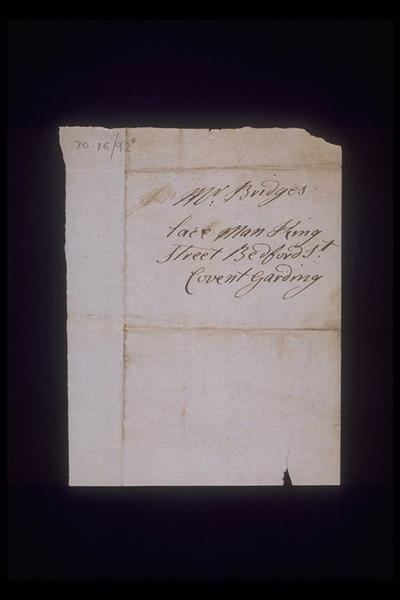 70·26/92
Mr. Bridges
lace Man King
Street Bedford St.
Covent Garding